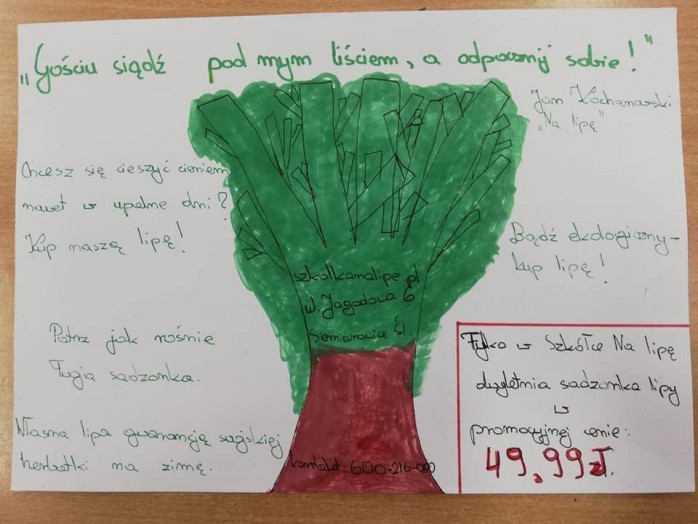 „Gościu siądź pod mym liściem, a odpocznij sobie!"
Jan Kochanowski
„Na lipę"
Chcesz się cieszyć cieniem
nawet w upalne dni?
Kup naszą lipę!
Bądź ekologiczny-
kup lipę!
szkolkanalipe.pl
ul. Jagodowa 6
Siemianowice Śl.
Patrz jak rośnie
Twoja sadzonka.
Własna lipa gwarancją swojskiej
herbatki na zimę.
kontakt: 600-216-090
Tylko w Szkółce Na lipę
dwuletnia sadzonka lipy
w
promocyjnej cenie:
49,99zł.